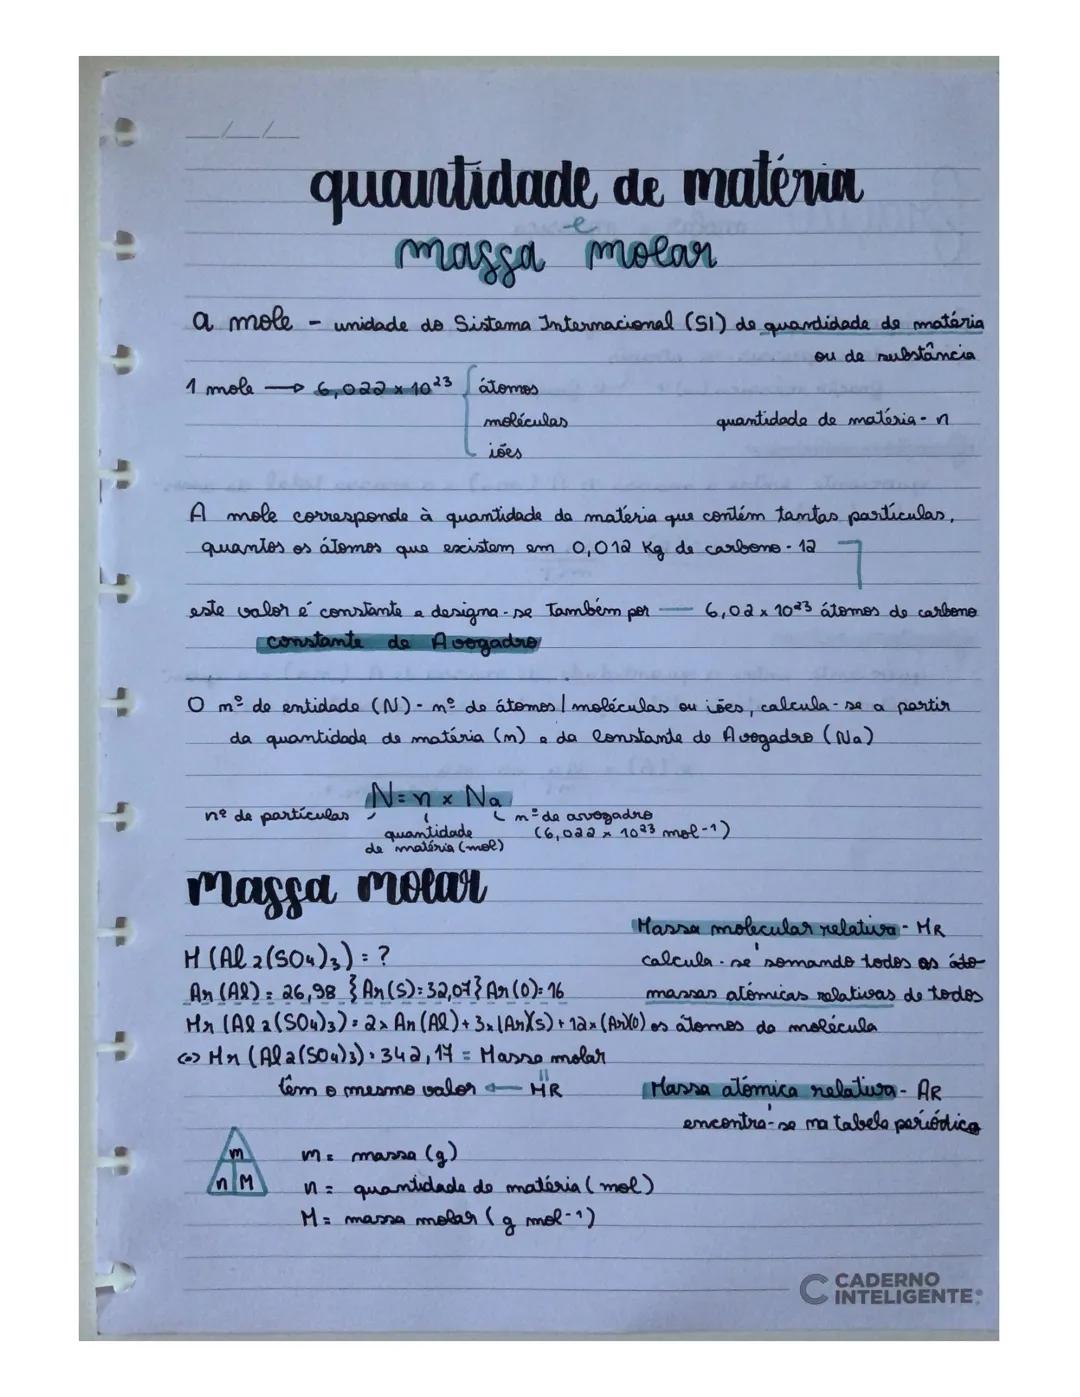 __/__/__
quantidade de matéria
e
massa molar
a mole - unidade do Sistema Internacional (SI) de quantidade de matéria
ou de substância
1 mole → 6,022 x 10²³ { átomos
moléculas
iões
quantidade de matéria - n
A mole corresponde à quantidade da matéria que contém tantas partículas,
quantos os átomos que existem em 0,012 Kg de carbono - 12
este valor é constante e designa-se também por — 6,02 x 10²³ átomos de carbono
constante de Avogadro
O nº de entidade (N) - nº de átomos / moléculas ou iões, calcula-se a partir
da quantidade de matéria (n) e da Constante de Avogadro (Na)
N = n x Na
nº de partículas
quantidade
de matéria (mol)
nº de avogadro
(6,022 x 10²³ mol-¹)
Massa molar
M (Al2(SO4)3) = ?
Ar (Al) = 26,98 } Ar (S) = 32,07 } Ar (O) = 16
Mr (Al2(SO4)3) = 2x Ar (Al) + 3x (Ar)(S) + 12x (Ar)(O)
<=> Mr (Al2(SO4)3) = 342,17 = Massa molar
têm o mesmo valor ← MR
Massa molecular relativa - MR
calcula-se somando todos as áto
massas atómicas relativas de todos
os átomos da molécula
Massa atómica relativa - AR
encontra-se na tabela periódica
m
n M
m = massa (g)
n = quantidade de matéria (mol)
M = massa molar (g mol-¹)
CADERNO
INTELIGENTE